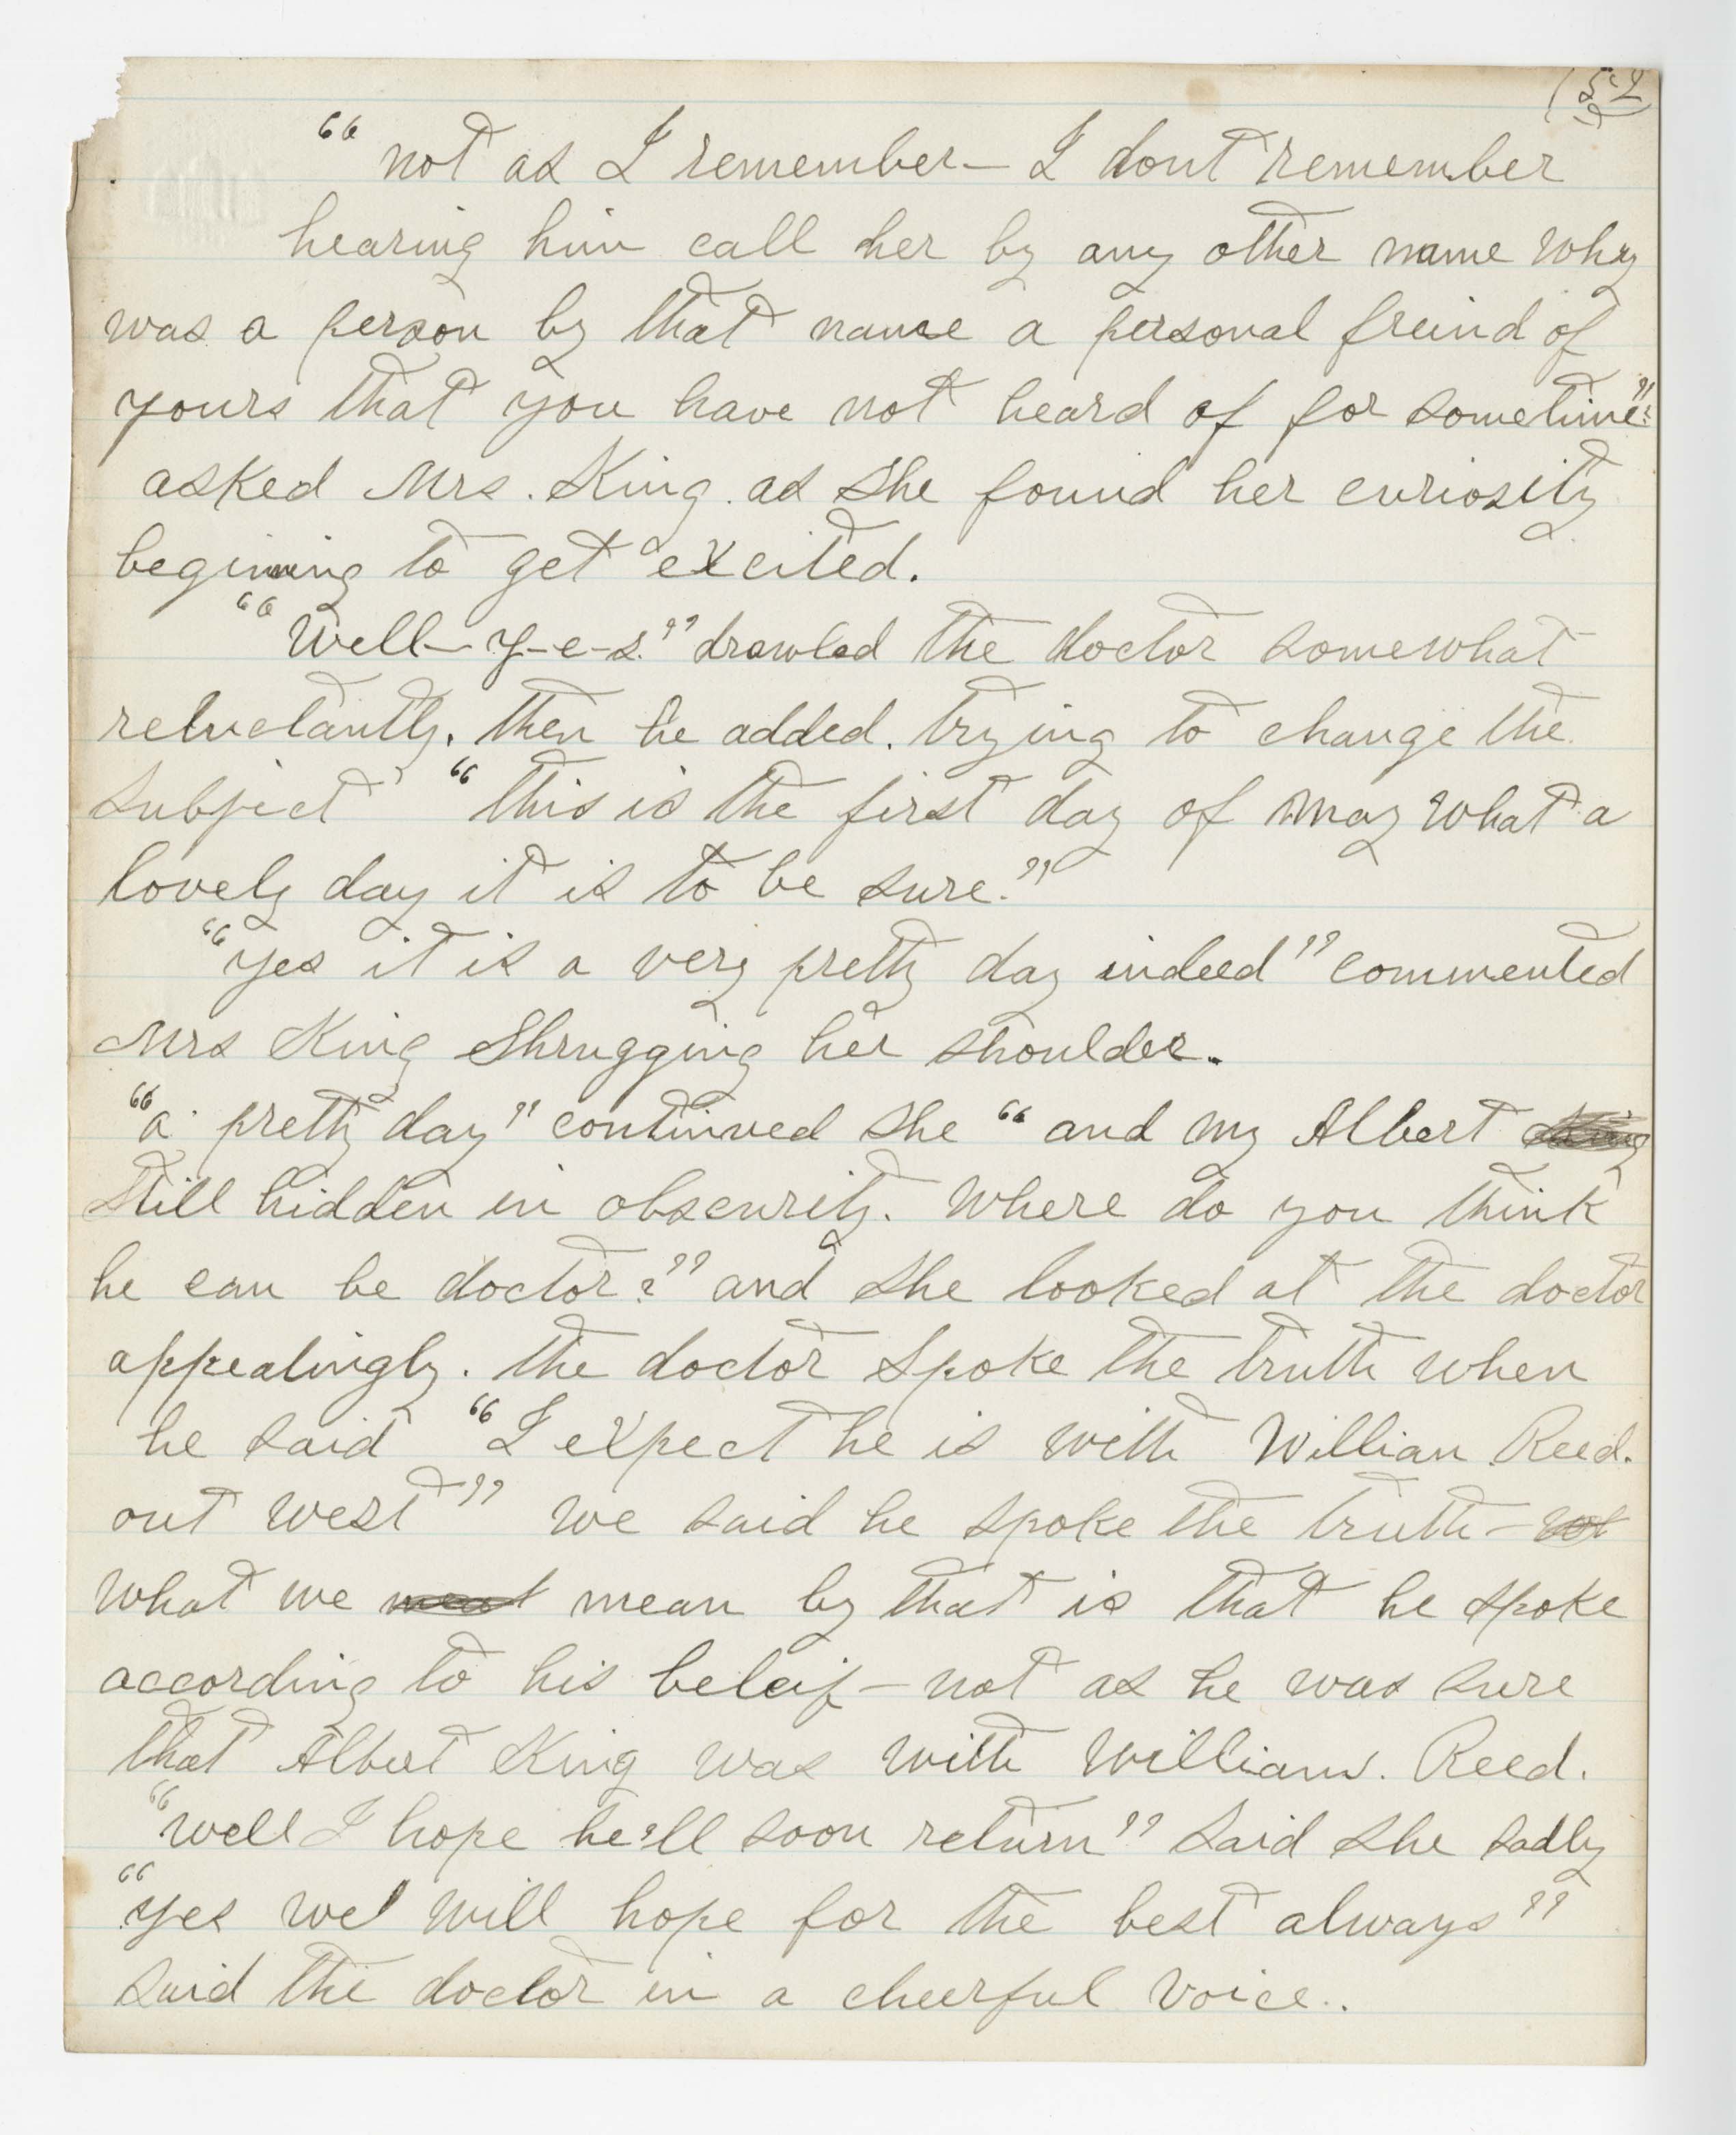 (52
"not as I remember— I dont remember
hearing him call her by any other name why
was a person by that name a personal freind of
yours that you have not heard of for sometime"?
asked Mrs. King. as she found her curiosity
begining to get excited.
"Well— y-e-s." drawled the doctor somewhat
reluctantly. then he added. trying to change the
subject "this is the first day of may what a
lovely day it is to be sure."
"yes it is a very pretty day indeed" commented
Mrs King shrugging her shoulder.
"a pretty day" continued she "and my Albert King
still hidden in obscurity. Where do you think
he can be doctor?" and she looked at the doctor
appealingly. the doctor spoke the truth when
he said "I expect he is with William Reed.
out west" we said he spoke the truth—
what we meant mean by that is that he spoke
according to his beleif— not as he was sure
that Albert King was with William. Reed.
"well I hope he'll soon return" said she sadly
"yes we will hope for the best always"
said the doctor in a cheerful voice..